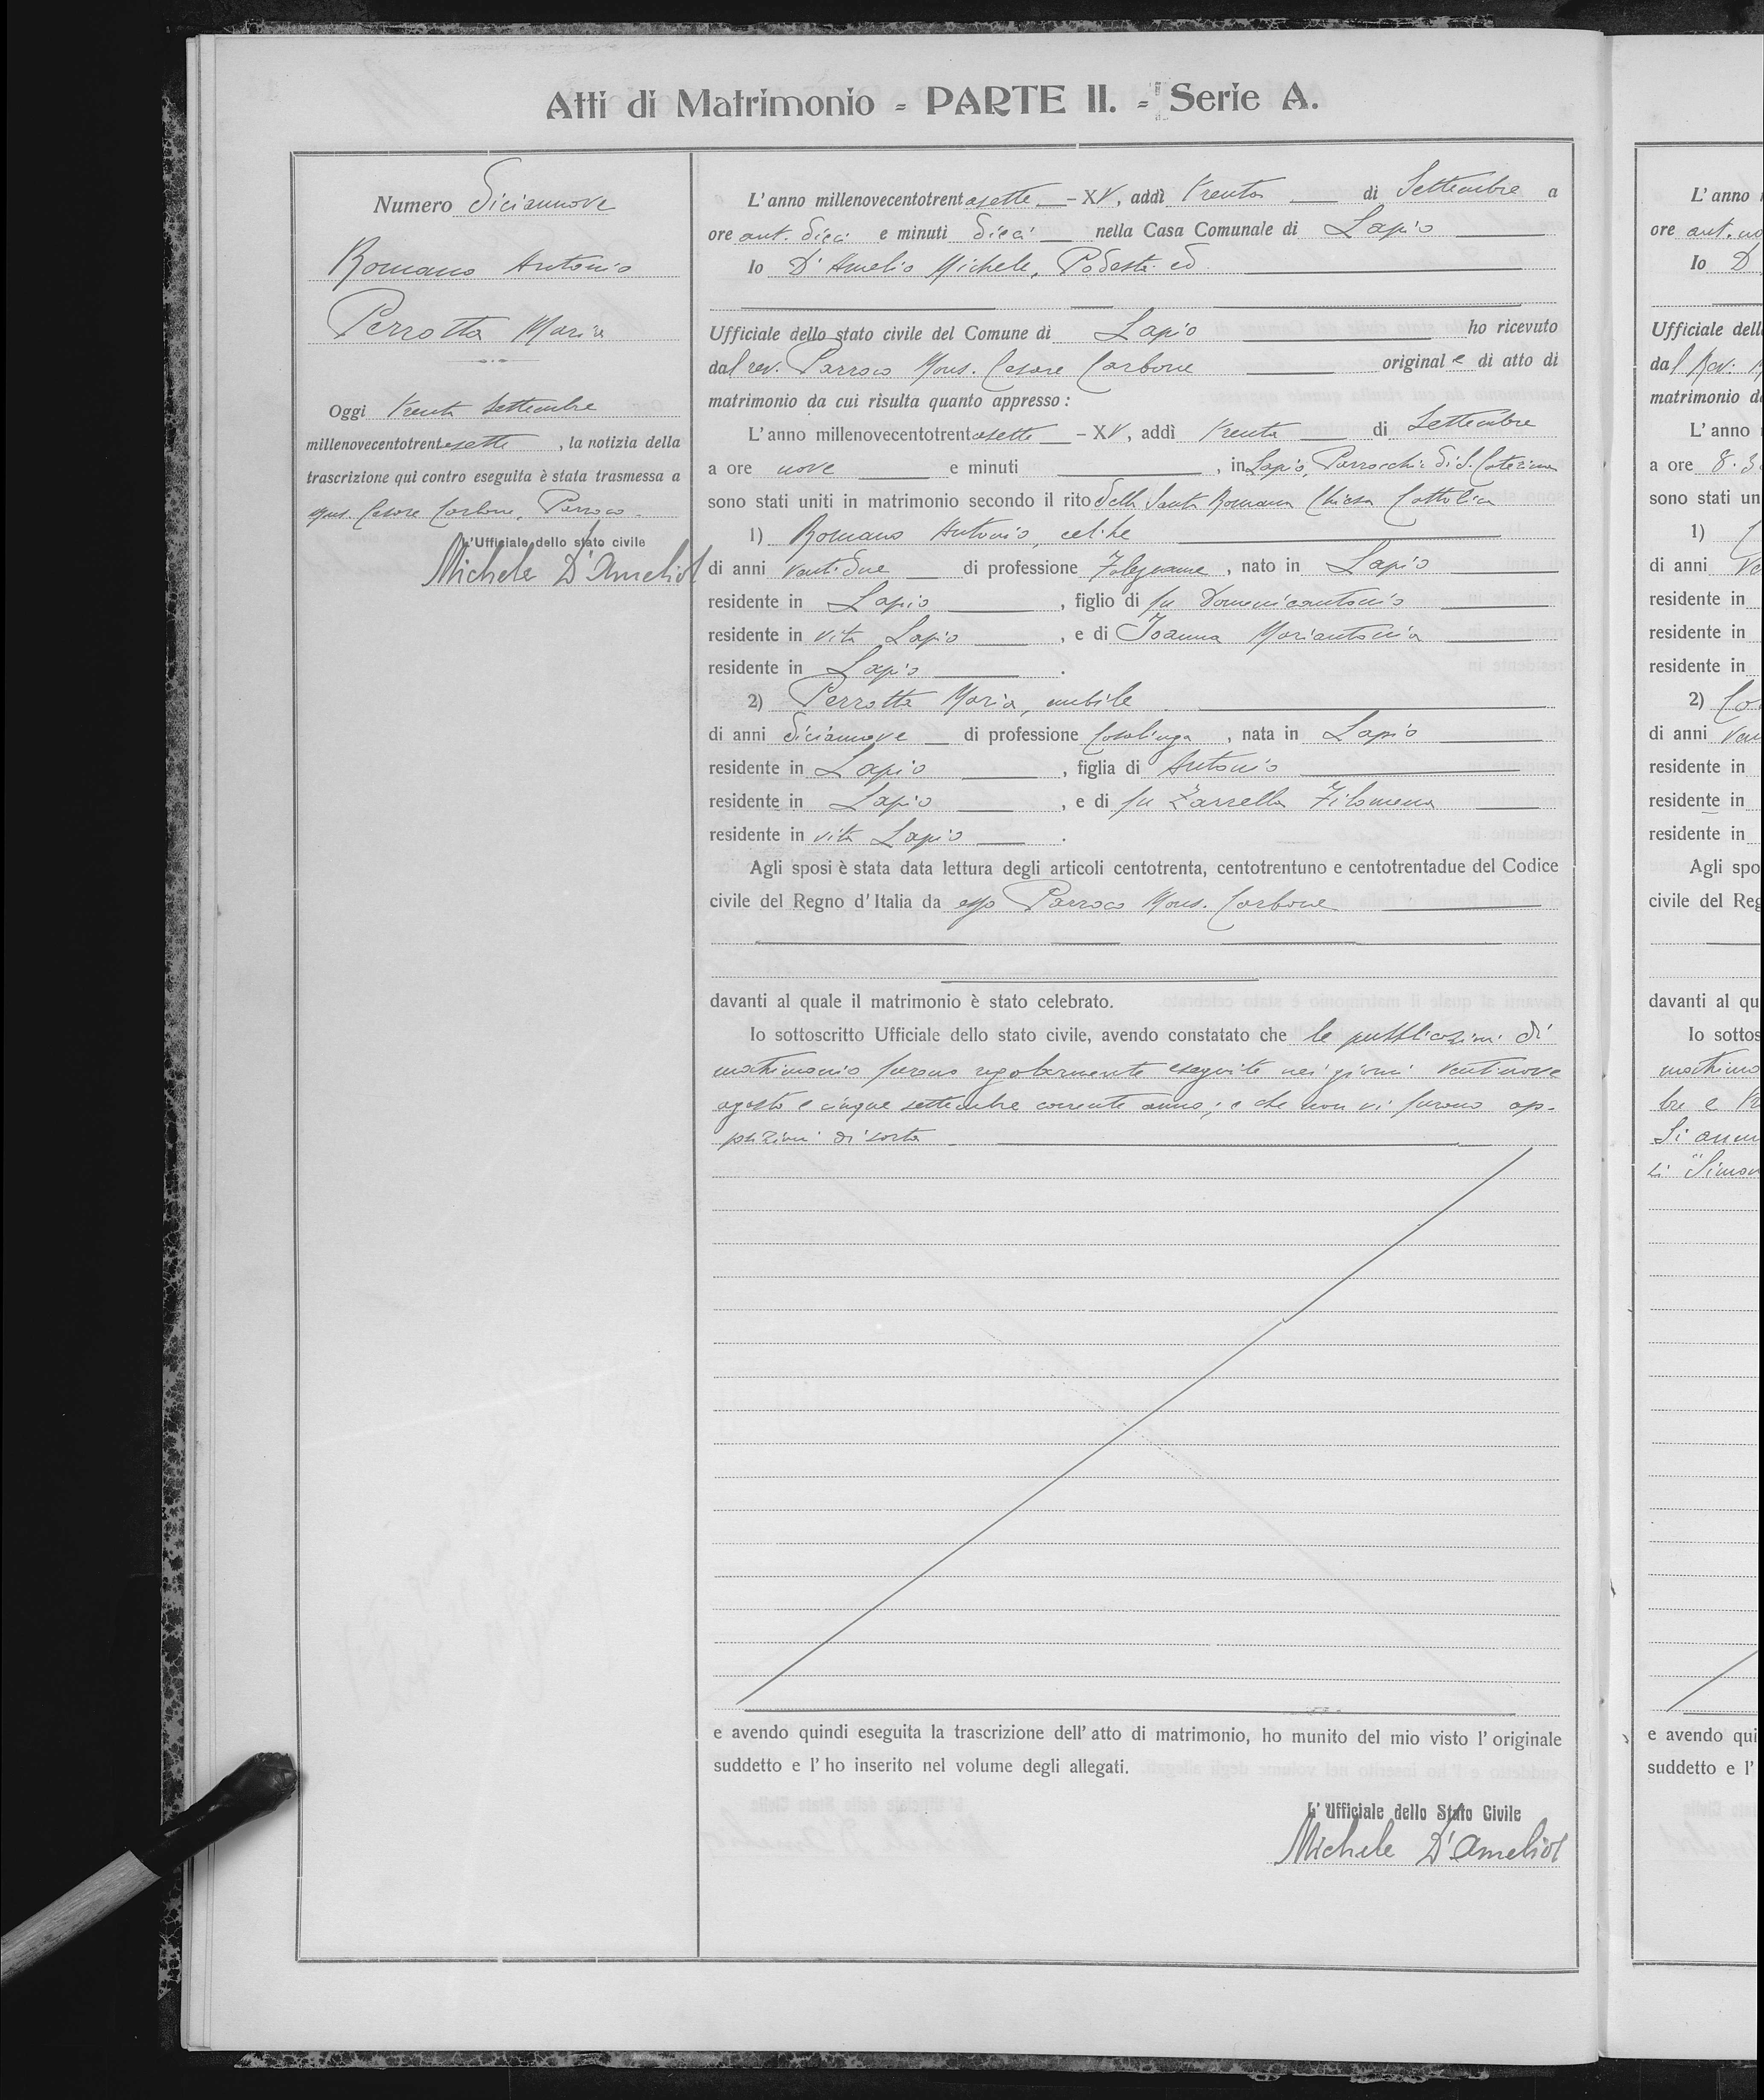 Atti di Matrimonio - PARTE II. - Serie A.
Numero Diciannove
Romano Antonio
Perrotta Maria
Oggi trenta settembre
millenovecentotrentasette, la notizia della
trascrizione qui contro eseguita è stata trasmessa a
Mons. Cesare Carbone, Parroco.
L'Ufficiale dello stato civile
Michele D'Amelio
L'anno millenovecentotrentasette - XV, addì trenta di Settembre a
ore ant. dieci e minuti dieci nella Casa Comunale di Lapio
Io D'Amelio Michele, Podestà ed
Ufficiale dello stato civile del Comune di Lapio ho ricevuto
dal rev. Parroco Mons. Cesare Carbone originale di atto di
matrimonio da cui risulta quanto appresso:
L'anno millenovecentotrentasette - XV, addì trenta di Settembre
a ore nove e minuti , in Lapio, Parrocchia di S. Caterina
sono stati uniti in matrimonio secondo il rito della Santa Romana Chiesa Cattolica
1) Romano Antonio, celibe
di anni ventidue di professione Falegname, nato in Lapio
residente in Lapio, figlio di fu Domenicantonio
residente in vita Lapio, e di Ioanna Mariantonia
residente in Lapio.
2) Perrotta Maria, nubile
di anni diciannove di professione Casalinga, nata in Lapio
residente in Lapio, figlia di Antonio
residente in Lapio, e di fu Zarrella Filomena
residente in vita Lapio.
Agli sposi è stata data lettura degli articoli centotrenta, centotrentuno e centotrentadue del Codice
civile del Regno d'Italia da esso Parroco Mons. Carbone
davanti al quale il matrimonio è stato celebrato.
Io sottoscritto Ufficiale dello stato civile, avendo constatato che le pubblicazioni di
matrimonio furono regolarmente eseguite nei giorni ventinove
agosto e cinque settembre corrente anno; e che non vi furono op-
posizioni di sorta
e avendo quindi eseguita la trascrizione dell'atto di matrimonio, ho munito del mio visto l'originale
suddetto e l'ho inserito nel volume degli allegati.
L'Ufficiale dello Stato Civile
Michele D'Amelio
L'anno
ore ant. no
Io D
Ufficiale dell
dal Rev. M
matrimonio d
L'anno
a ore 8.3
sono stati un
1)
di anni Ve
residente in
residente in
residente in
2) Co
di anni Ven
residente in
residente in
residente in
Agli spo
civile del Reg
davanti al qu
Io sottos
matrimo
bre e
Si annu
di "Simon
e avendo qui
suddetto e l'